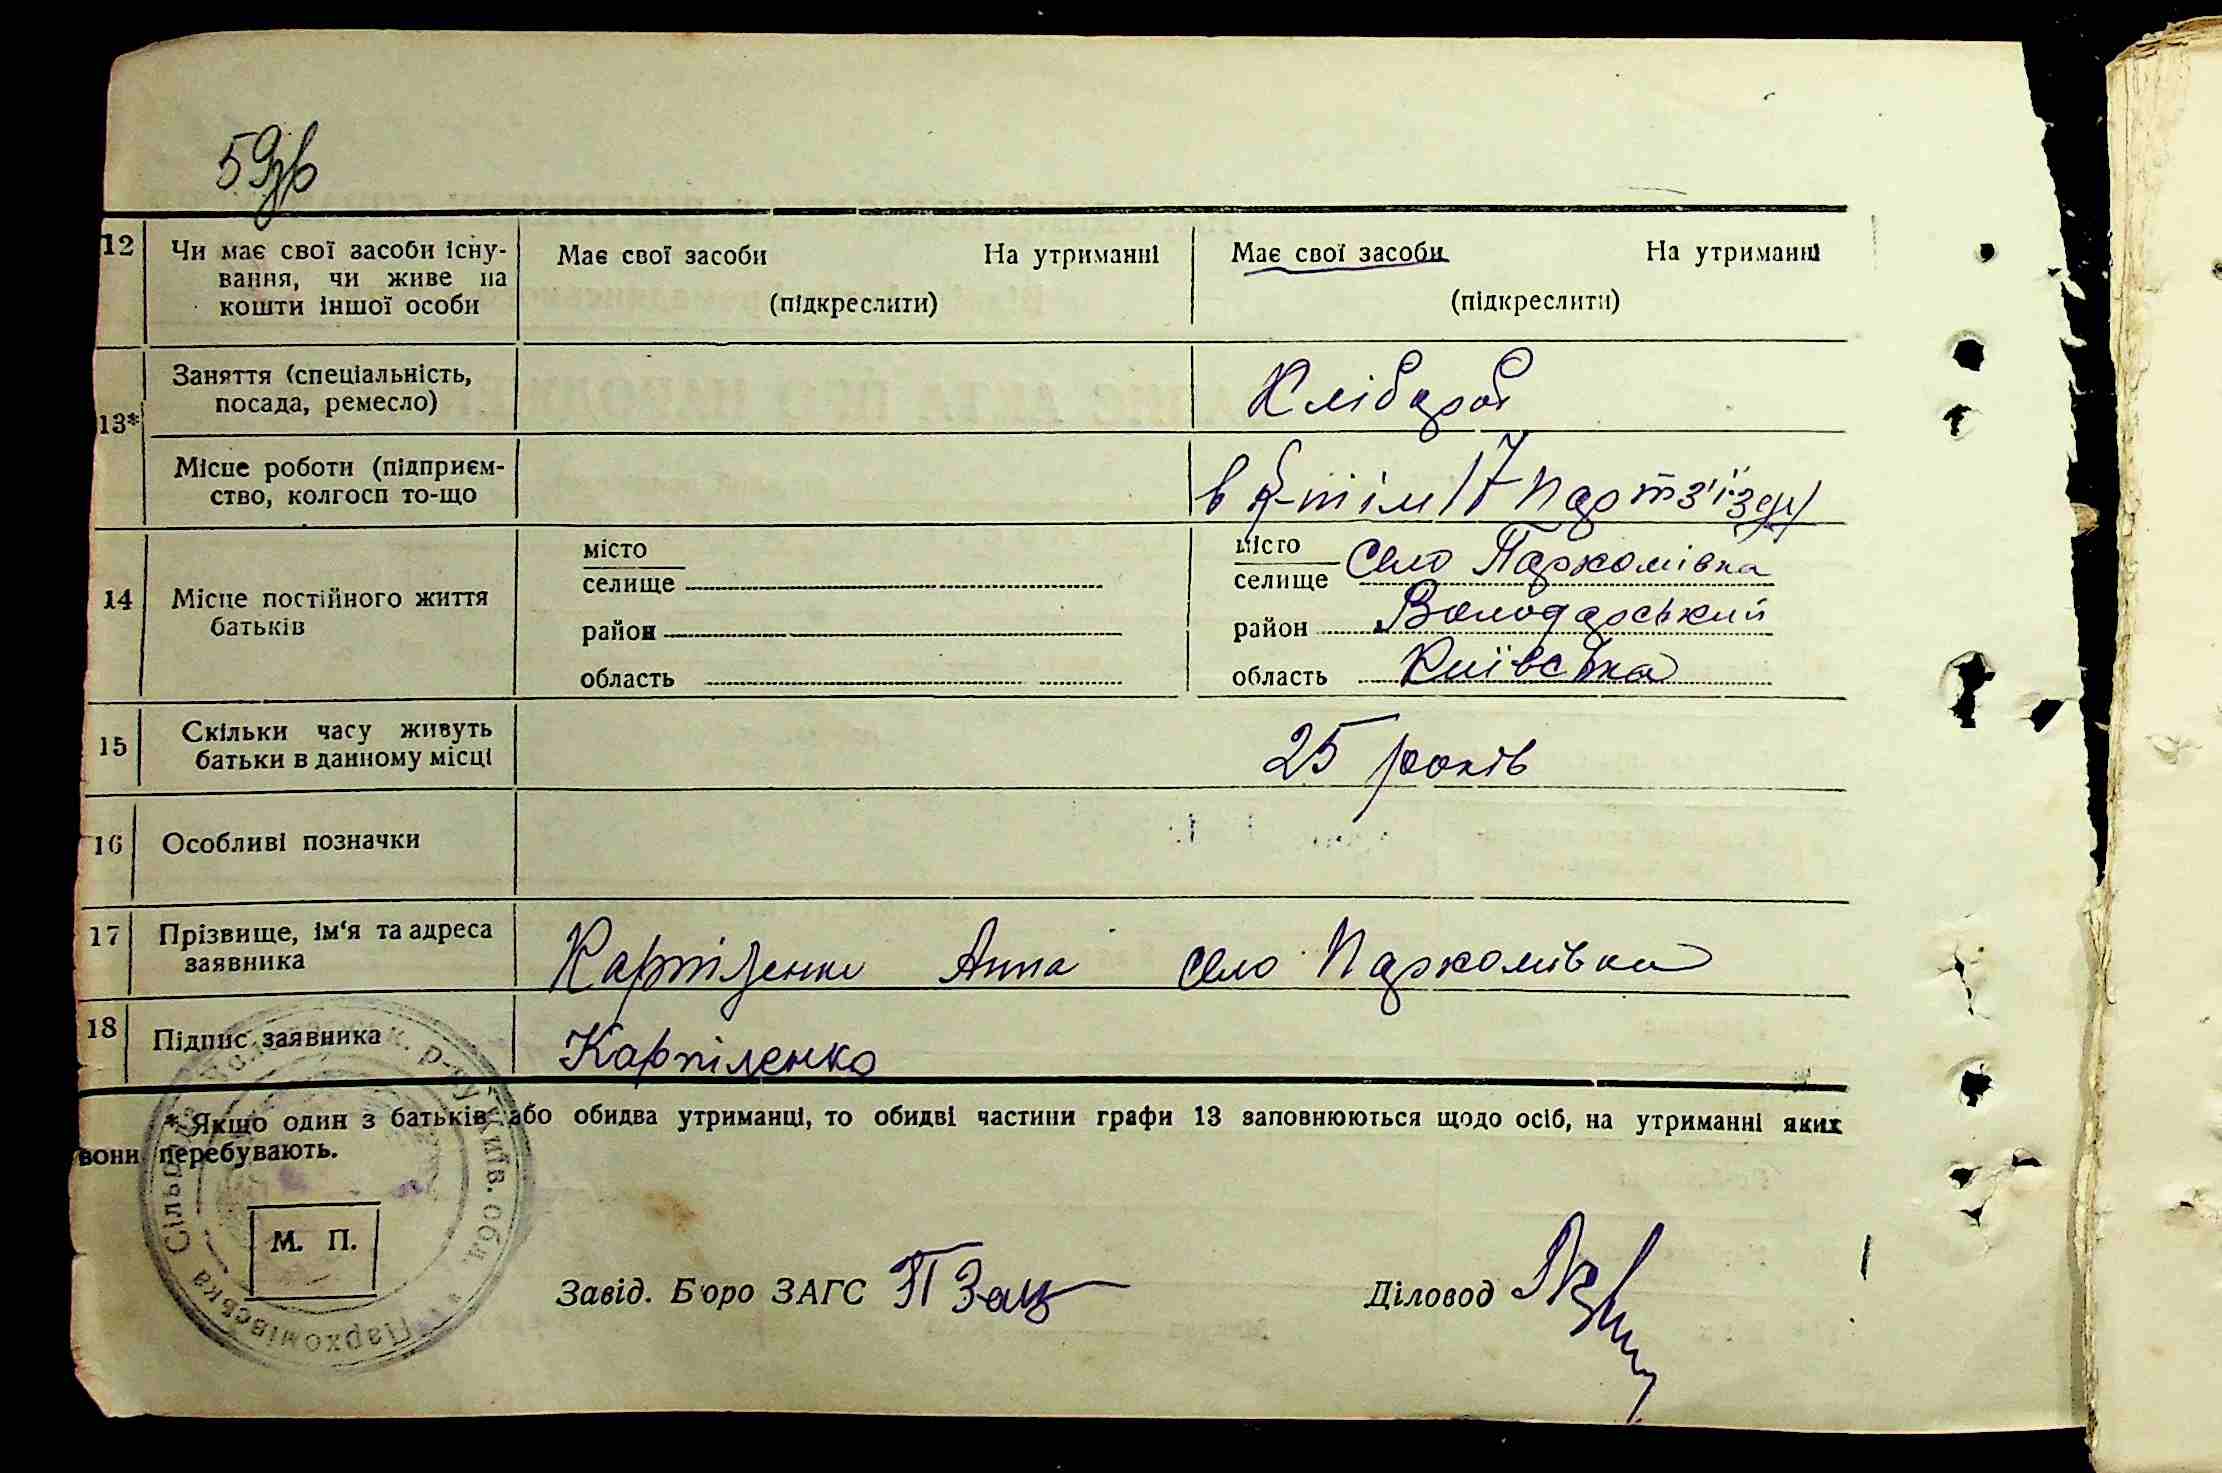 59зв
12 Чи має свої засоби існу- Має свої засоби На утриманні Має свої засоби На утриманні
вання, чи живе на
кошти іншої особи (підкреслити) (підкреслити)
13* Заняття (спеціальність, Хлібороб
посада, ремесло)
Місце роботи (підприєм- в к-пі ім 17 партз'їзду
ство, колгосп то-що
14 Місце постійного життя місто місто Село Пархомівка
батьків селище селище
район район Володарський
область область Київська
15 Скільки часу живуть 25 років
батьки в данному місці
16 Особливі позначки
17 Прізвище, ім'я та адреса Карпіленко Анна село Пархомівка
заявника
18 Підпис заявника Карпіленко
* Якщо один з батьків або обидва утриманці, то обидві частини графи 13 заповнюються щодо осіб, на утриманні яких
вони перебувають.
М. П.
Завід. Бюро ЗАГС
Діловод
Пархомівська Сільрада р-ну Київ. обл.